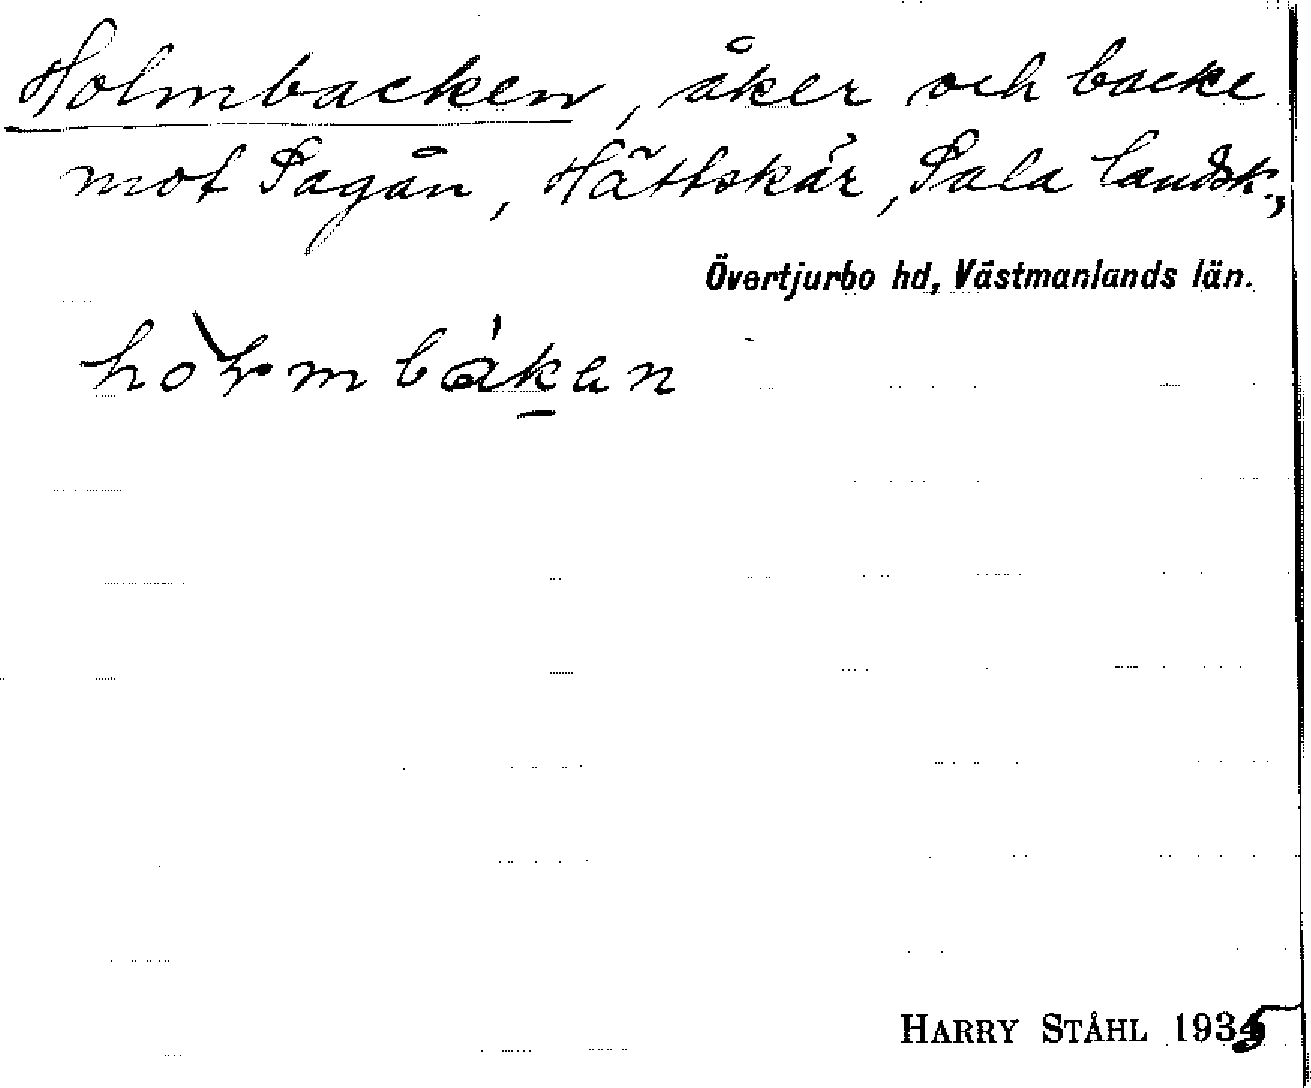 Holmbacken, åker och backe
mot Sagån, Hättskär, Sala landsk.,
Övertjurbo hd, Västmanlands län.
HARRY STÅHL 1935